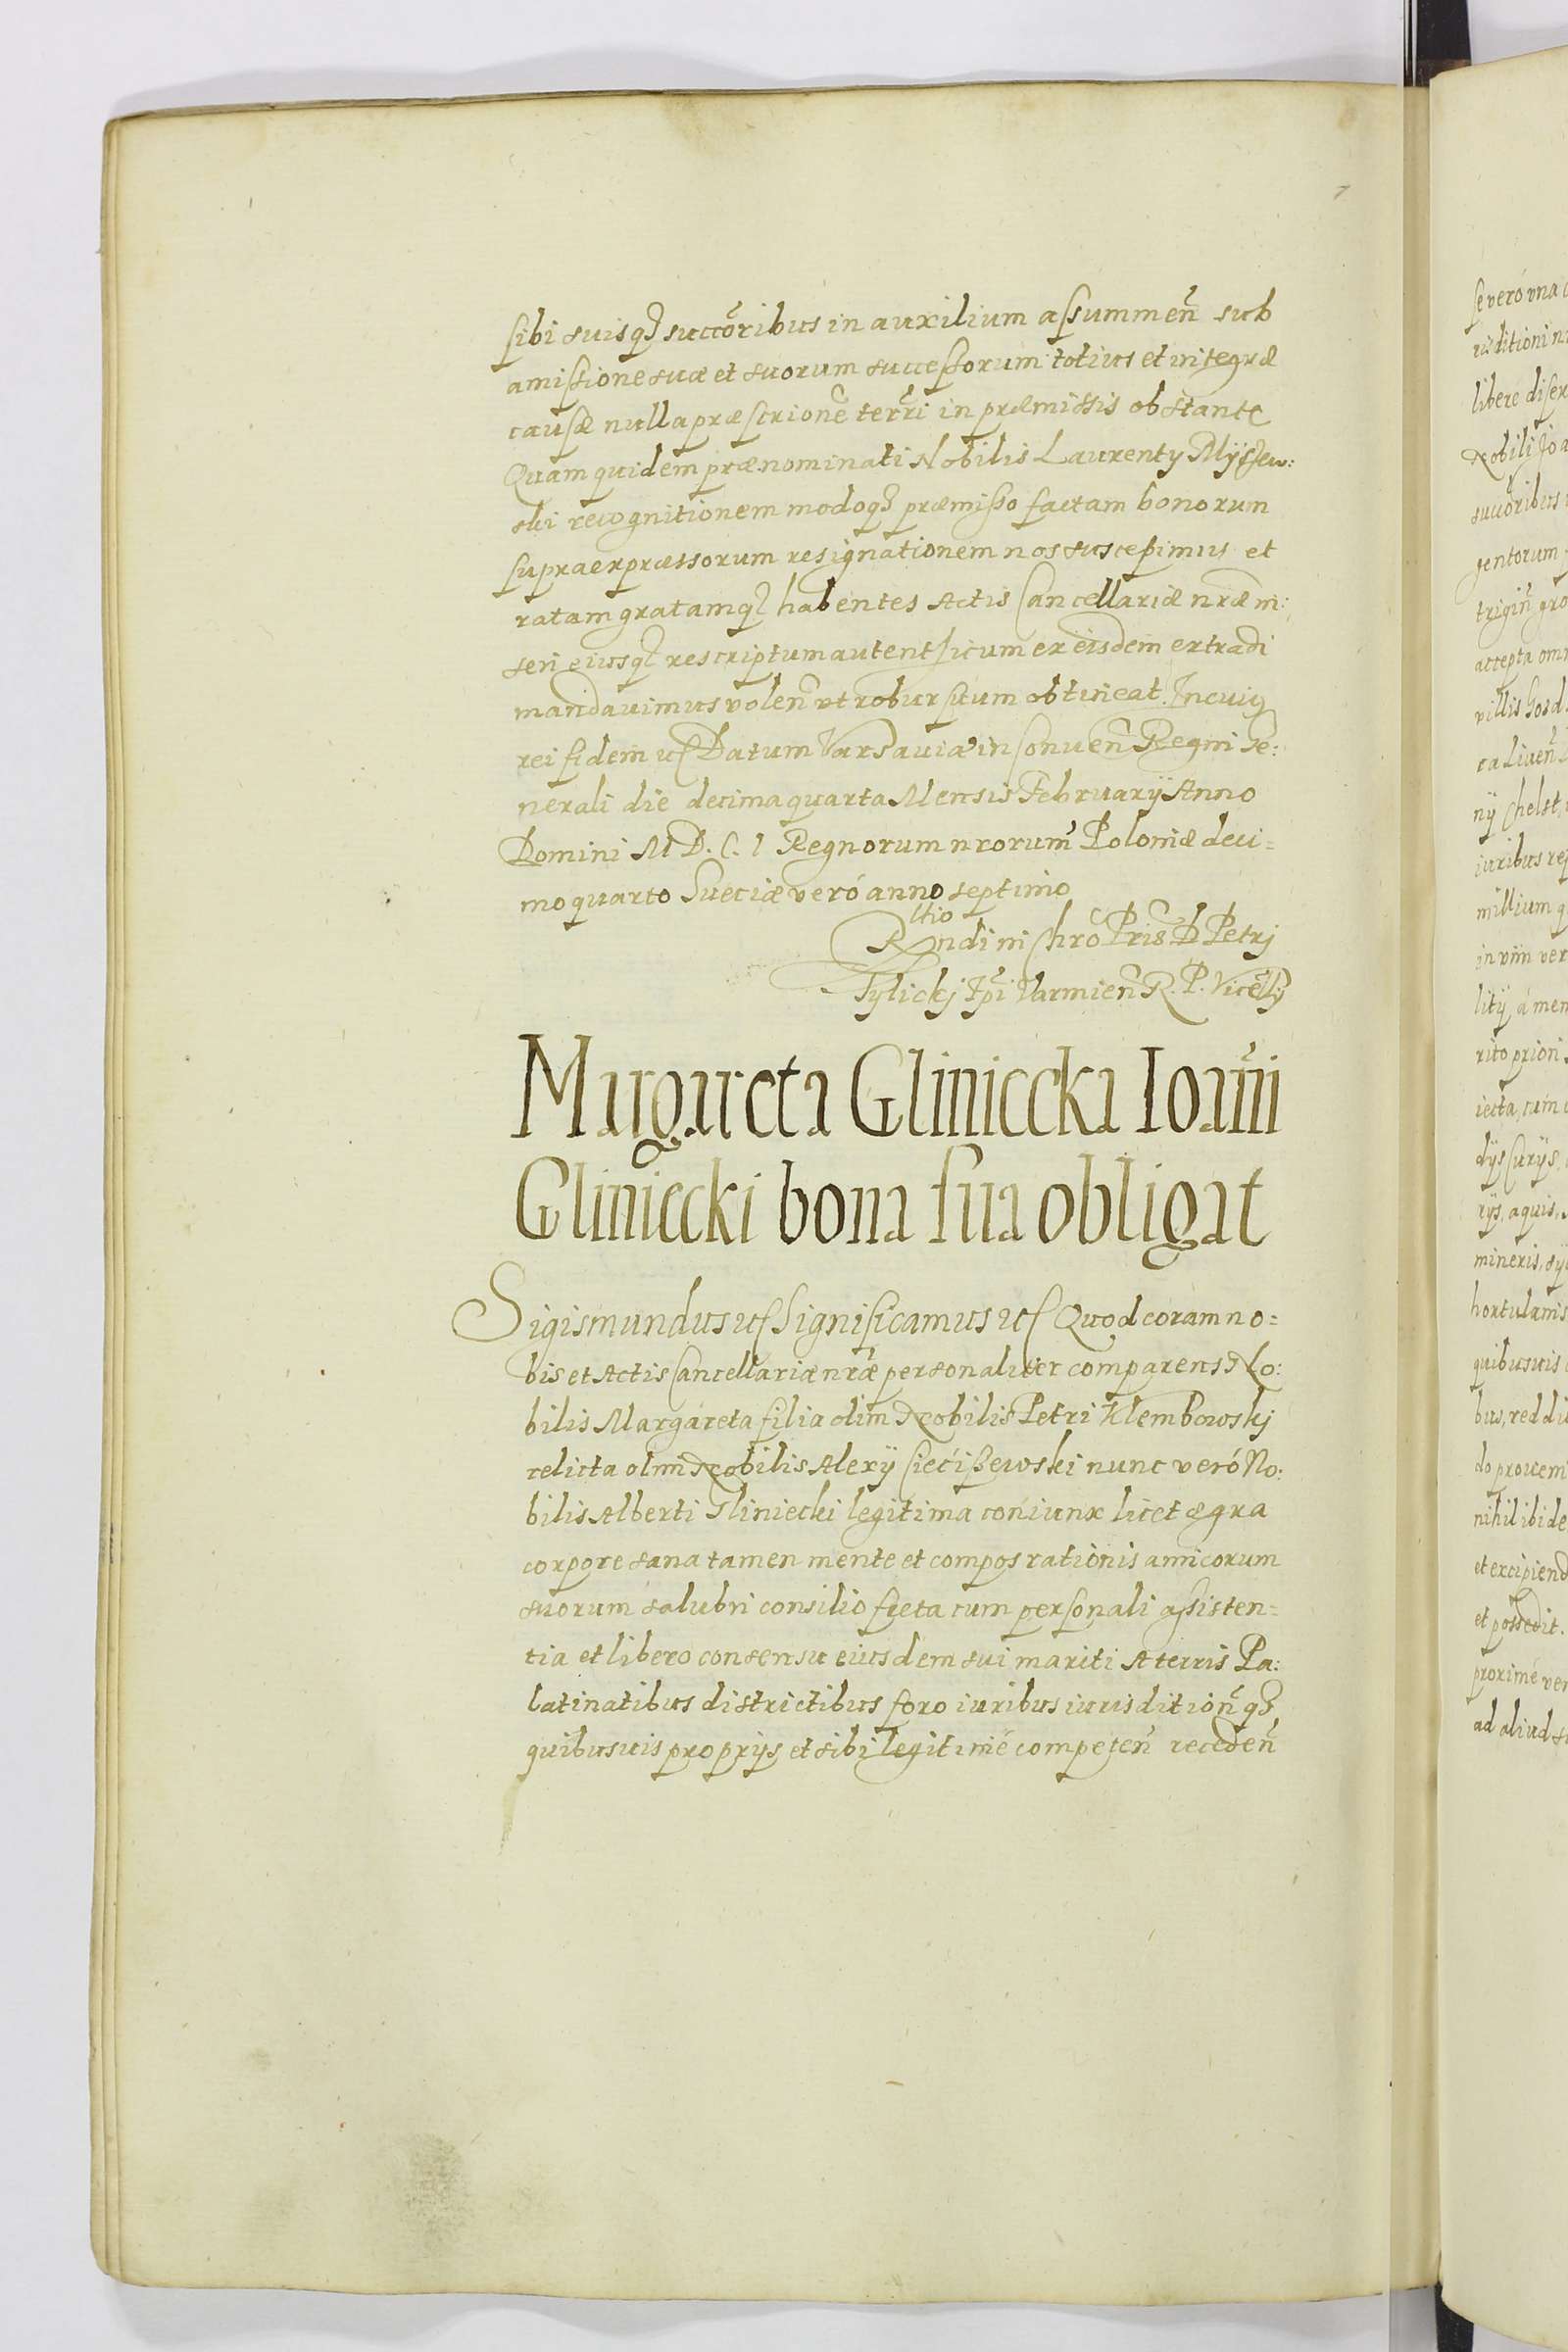 sibi suisq3 succoribus in auxilium assummen sub
amissione suæ et suorum successorum totius et integræ
causæ nulla præscrione terri in præmissis obstante
Quam quidem prænominati Nobilis Laurenty Myssew:
ski recognitionem modoq3 præmisso factam bonorum
supraexpræssorum resignationem nos suscepimus et
ratam gratamq3 habentes Actis Cancellariæ nræ in:
seri eiusq3 rescriptum autenthicum ex eisdem extradi
mandauimus volen vt robur suum obtineat. In cuig
rei fidem etc Datum Varsauiæ in Conuen Regni Ge:
nerali die decima quarta Mensis February Anno
Domini M D. C. I Regnorum nrorum Poloniæ deci=
mo quarto Sueciæ veró anno septimo
Rltio Rndi in Chro Pris D Petrj
Tylickj Epi Varmien R. P. Vicecllrij
Margareta Gliniecka Ioanni
Gliniecki bona sua obligat
Sigismundus etc Significamus etc Quod coram no=
bis et Actis Cancellariæ nræ personaliter comparens No:
bilis Margareta filia olim Nobilis Petri Klembowskj
relicta olim Nobilis Alexy Siecißewski nunc veró No:
bilis Alberti Gliniecki legitima coniunx licet ægra
corpore sana tamen mente et compos rationis amicorum
suorum salubri consilio freta cum personali assisten=
tia et libero consensu eiusdem sui mariti A terris Pa:
latinatibus districtibus foro iuribus iurisdition q3
quibusuis proprijs et sibi legitimé competen receden
se veró vna
risditioni n
libere diser
Nobili Ioa
succoribus
gentorum
trigin gro
accepta om
villis
caliuen
ny Chelst,
iuribus re
millium q
in vim ver
lity á men
rito priori
iecta, cum
dys curys,
rys, aquis,
mineris,
hortulanis
quibusuis
bus, reddi
do prouem
nihil ibi de
et excipiend
et possedit.
proximé ve
ad aliud